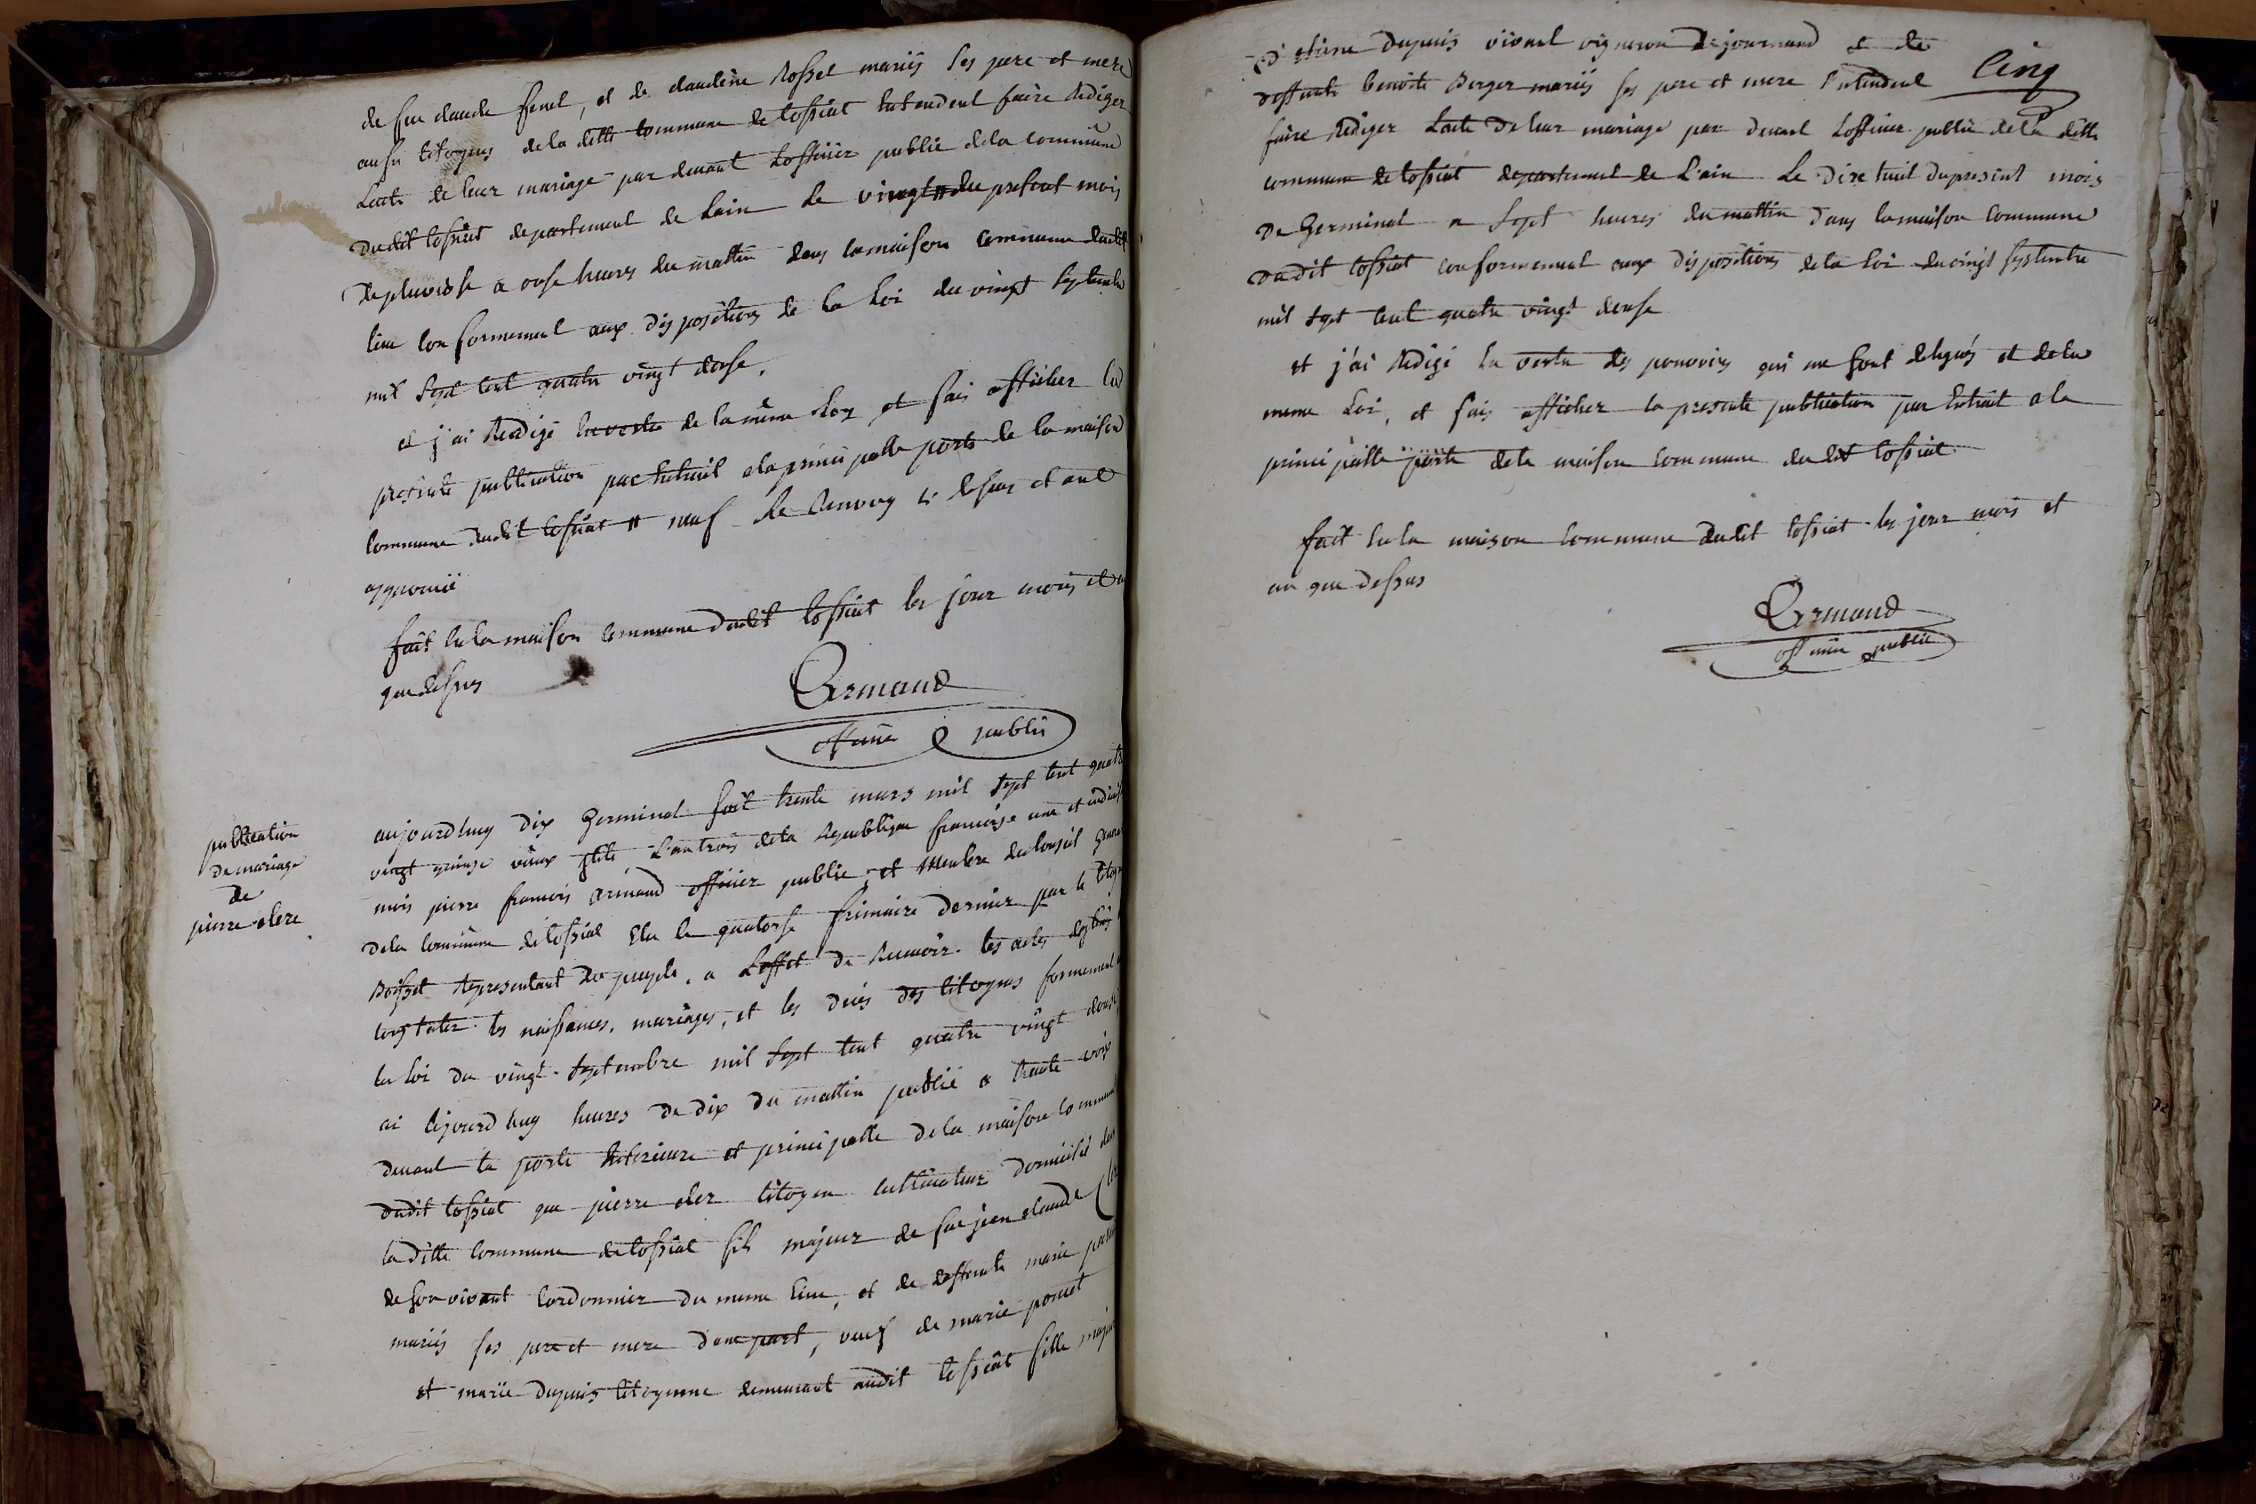 de feu claude fenel, et de claudine Rosset mariés ses pere et mere
aussi citoyens de la ditte commune de Cossiat Entendent faire Rediger
Lacte de leur mariage par devant Lofficier public dela commune
dudit Cossiat departement de Lain le vingt # du present mois
de pluviose a onse heures du mattin dans la maison commune dudit
lieu Conformement aux dispositions de la Loi du vingt septembre
mil sept cent quatre vingt douse.
et j'ai Redigé En vertu de la même Loy et fais afficher la
presente publication par Extrait a la principalle porte de la maison
commune dudit Cossiat # neuf le Renvoy ci dessus et aut
approuvé
fait En la maison commune dudit Cossiat les jour mois et an
que dessus
Armand
officier public
publication
de mariage
de
pierre clerc
aujourdhuy dix Germinal soit trente mars mil sept cent quatre
vingt quinse vieux stile L'an trois dela Republique francoise une et indivisi
mois pierre francois Armand officier public et Membre du Conseil General
dela Commune de Cossiat Elu le quatorse frimaire dernier par le citoyen
Boisset Representant du peuple, a Leffet de Recevoir les actes destinés a
constater les naissances, mariages, et les décés des citoyens formement a
la Loi du vingt Septembre mil Sept Cent quatre vingt douse,
ai cejourdhuy heures de dix du mattin publié a haute voix
devant la porte Exterieure et principalle dela maison commune
dudit Cossiat que pierre clerc citoyen cultivateur domicilié dans
la ditte Commune de Cossiat fils majeur de feu jean claude Clerc
de son vivant Cordonnier du meme lieu, et de deffunte marie
mariés ses pere et mere d'une part, veuf de marie poncet
et marie dupuis citoyenne demeurant audit Cossiat fille majeure
D'Etiene dupuis vivant vigneron de journand et de
deffunte benoite Berger mariés ses pere et mere Entendent
Cinq
faire Rediger Lacte de leur mariage par devant Lofficier public dela ditte
commune de Cossiat departement de L'ain Le dixe huit du present mois
de Germinal a Sept heures du mattin dans la maison Commune
dudit Cossiat conformement aux dispositions de la Loi du vingt septembre
mil sept cent quatre vingt douse
et j'ai Redigé En vertu des pouvoirs qui me sont delegués et de la
meme Loi, et fais afficher la presente publication par Extrait a la
principalle porte dela maison commune du dit Cossiat
fait En la maison commune dudit Cossiat les jour mois et
an que dessus
Armand
officier public